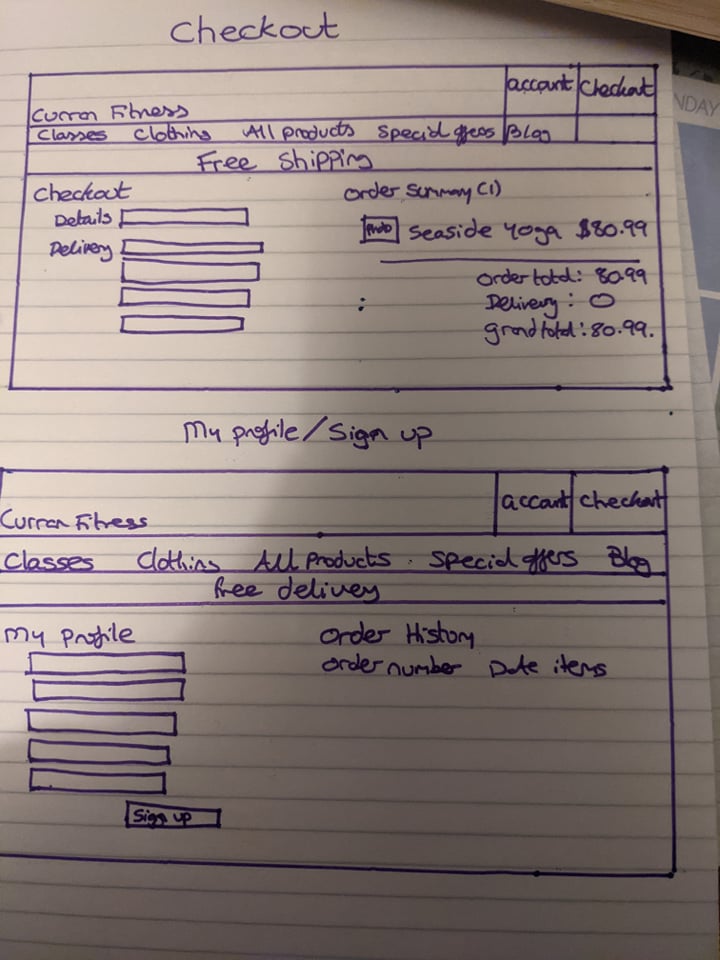 Checkout
account Checkout
Curran Fitness
Classes Clothing All products Special offers Blog
Free Shipping
Checkout
Order Summary (1)
Details
Photo Seaside Yoga $80.99
Delivery
order total: 80.99
Delivery: 0
grand total: 80.99.
My profile/Sign up
account Checkout
Curran Fitness
Classes Clothing All Products. Special offers Blog
free delivery
My Profile
Order History
order number Date items
Sign up
NDAY